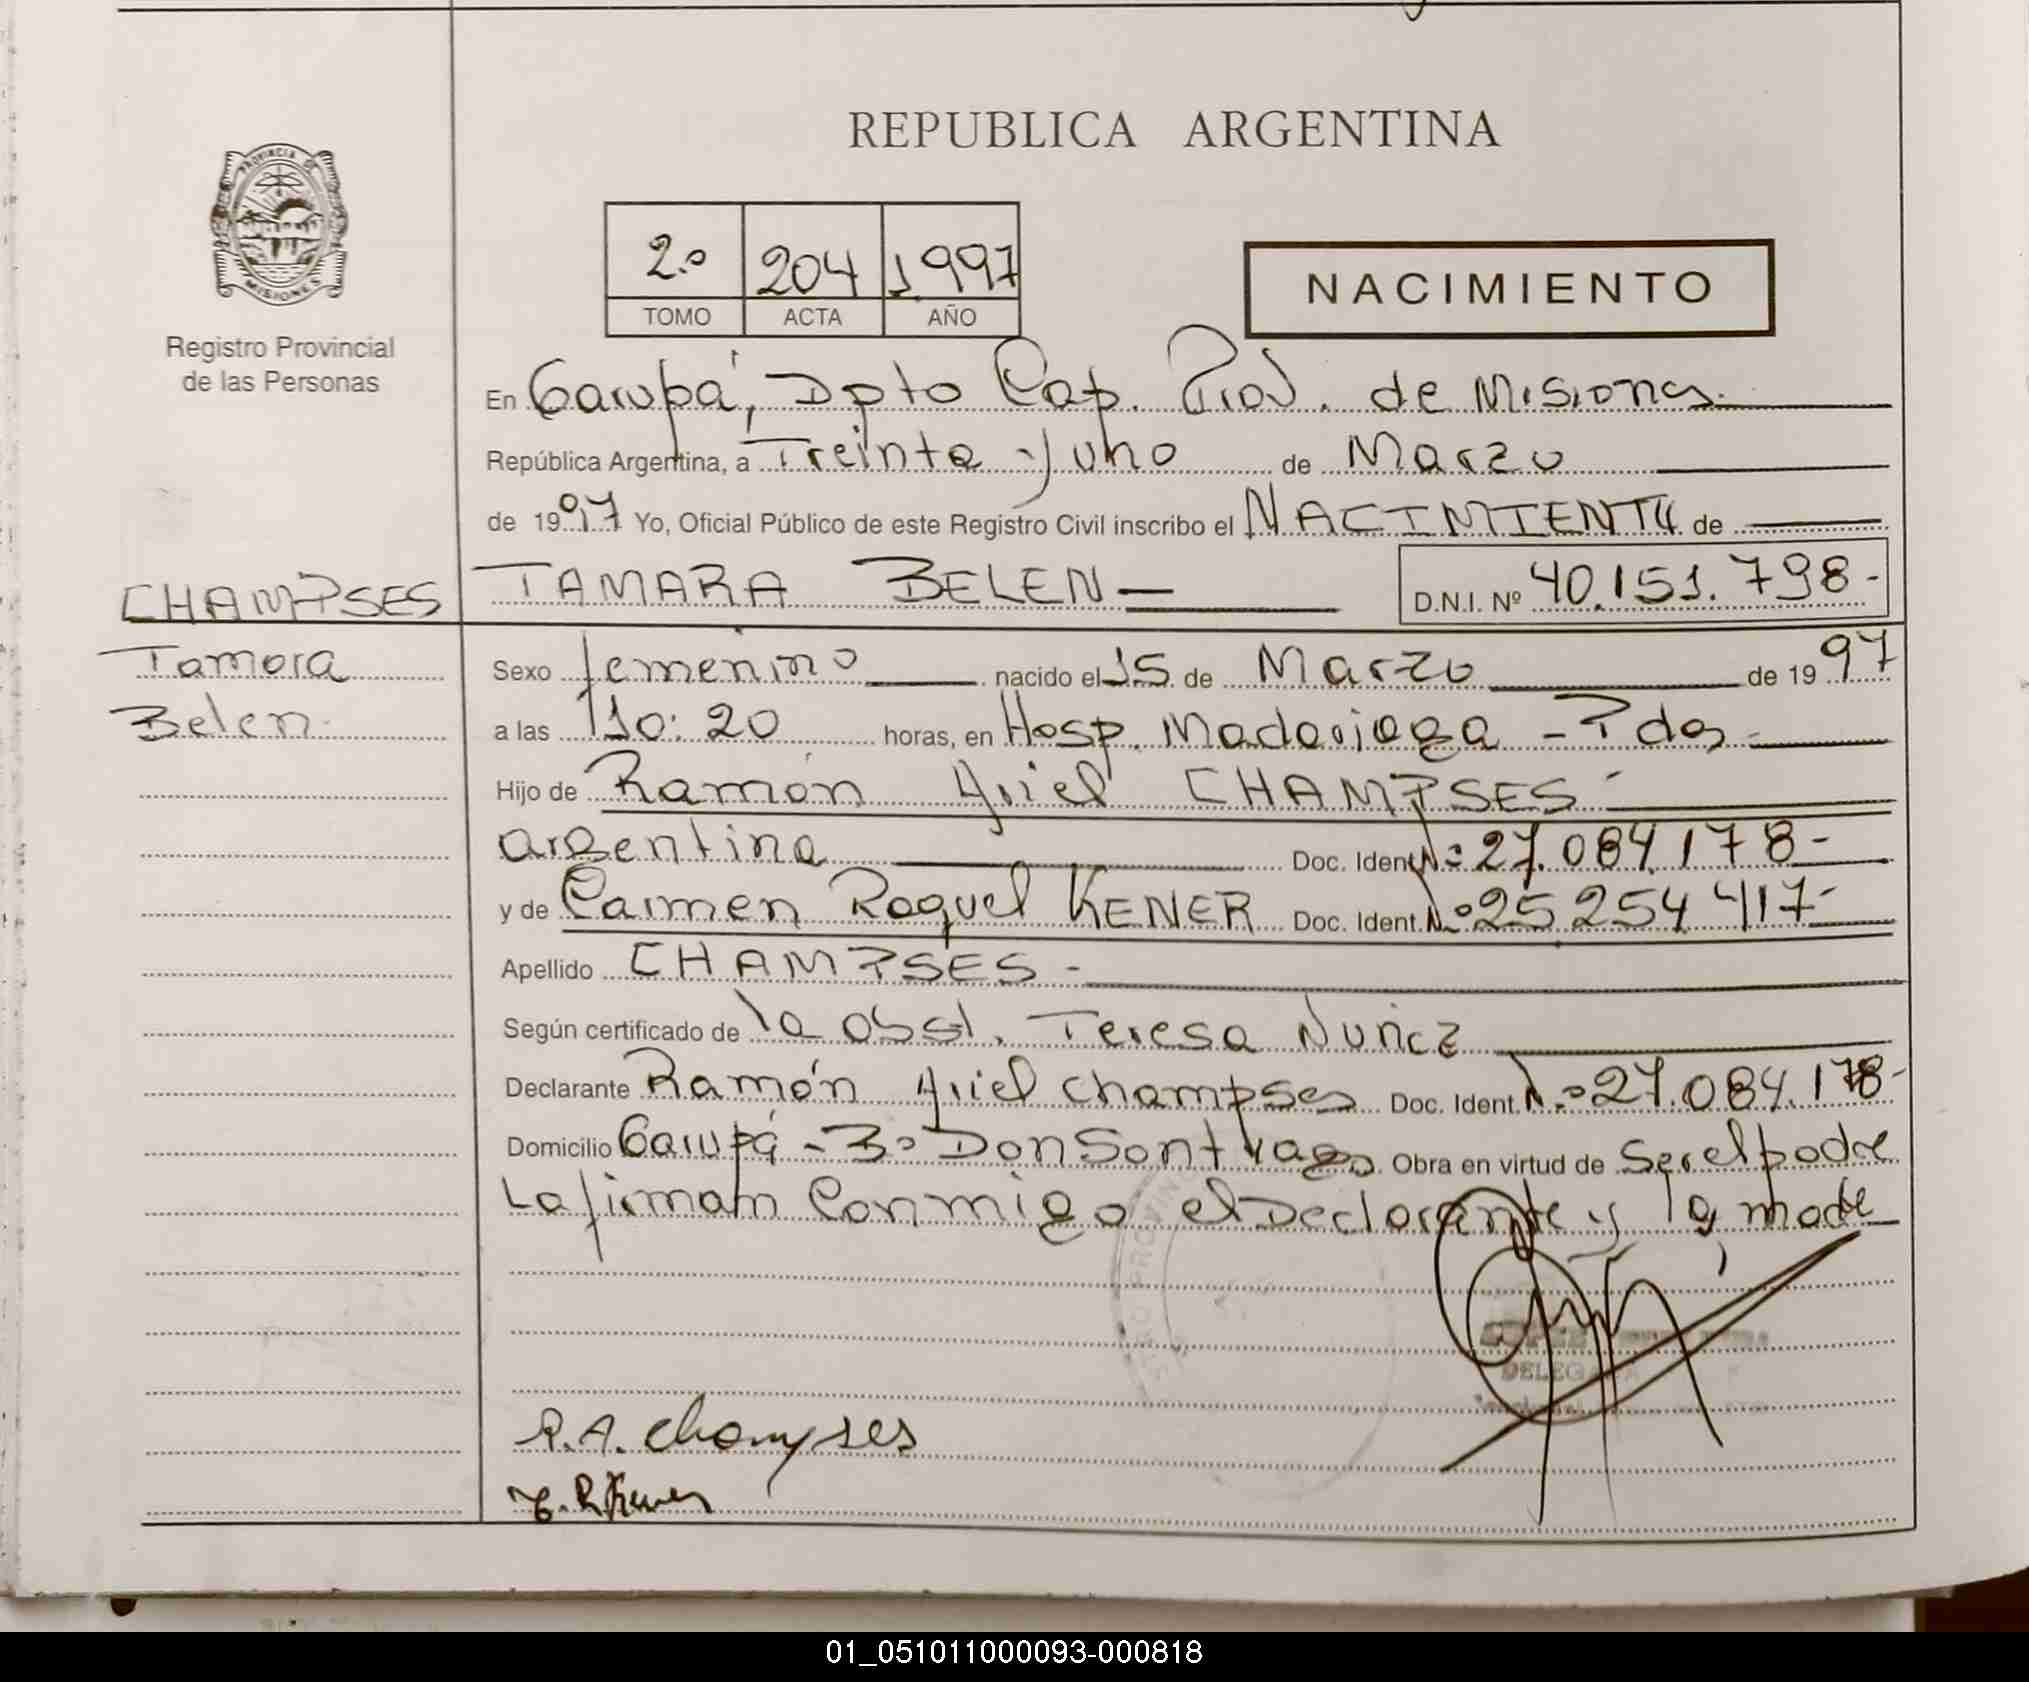 REPUBLICA ARGENTINA
PROVINCIA DE MISIONES
Registro Provincial
de las Personas
2º 204 1997
TOMO ACTA AÑO
NACIMIENTO
En Garupá, Dpto Cap. Prov. de Misiones
República Argentina, a Treinta y uno de Marzo
de 1997 Yo, Oficial Público de este Registro Civil inscribo el NACIMIENTO de
CHAMPSES TAMARA BELEN D.N.I. Nº 40.151.798-
Tamara
Belen
Sexo femenino nacido el 15 de Marzo de 1997
a las 10:20 horas, en Hosp. Madariaga - Pdas
Hijo de Ramón Ariel CHAMPSES
argentina Doc. Ident. Nº 27.084.178-
y de Carmen Raquel KENER Doc. Ident. Nº 25.254.417-
Apellido CHAMPSES -
Según certificado de la obst. Teresa Nuñez
Declarante Ramón Ariel Champses Doc. Ident. Nº 27.084.178-
Domicilio Garupá - Bº Don Santiago Obra en virtud de ser el padre
La firman Conmigo el Declarante y la madre
PROVINC
DELEGADA
R.A. Champses
C. R Kener
01_051011000093-000818